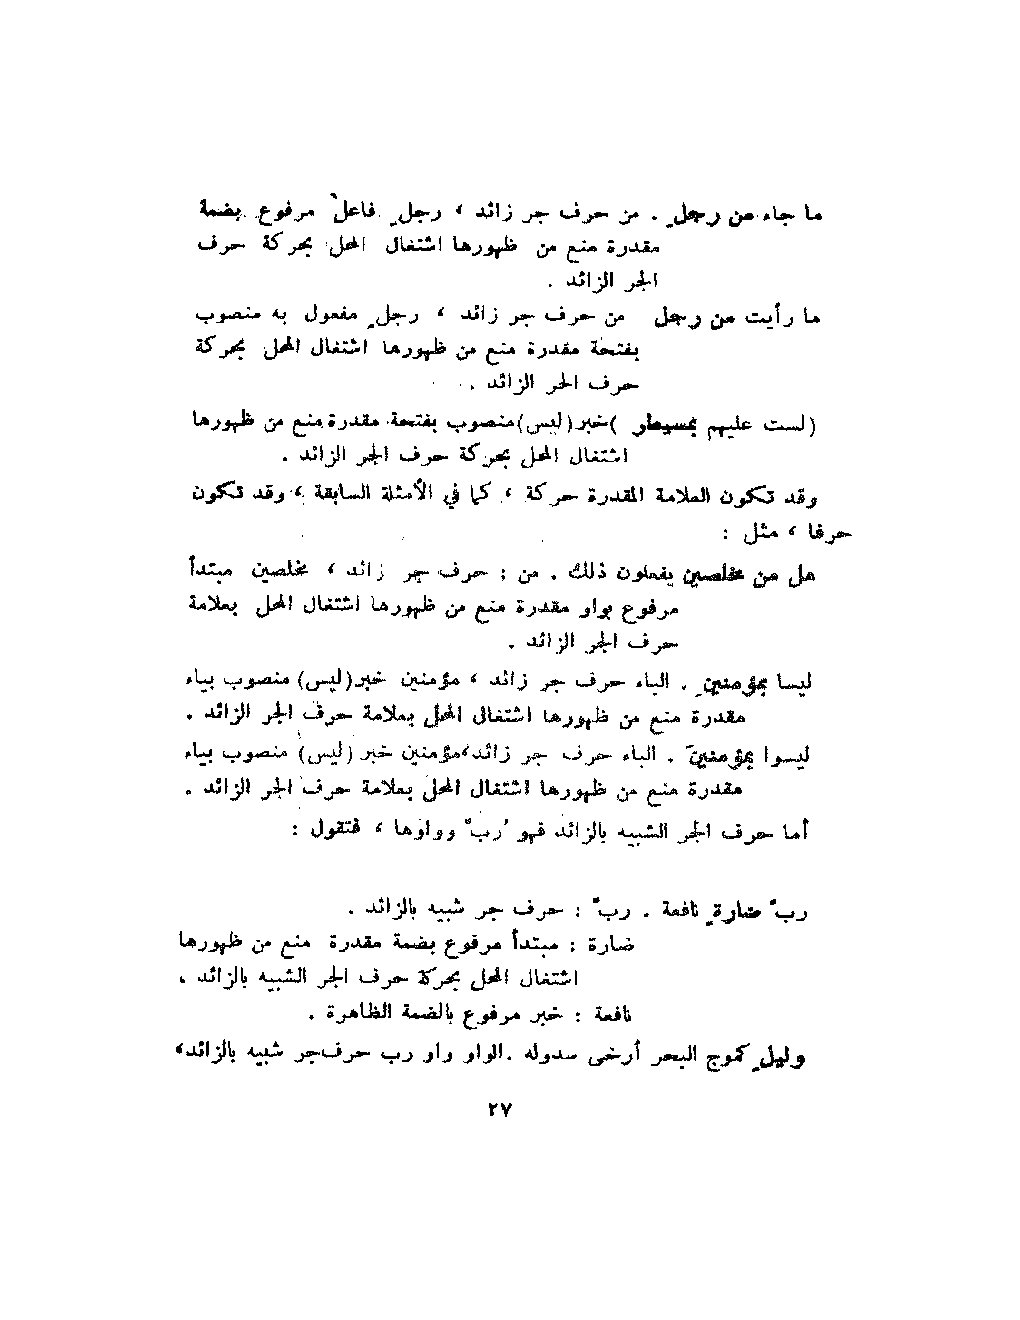 ما جاء من رجلٍ . من حرف جر زائد ، رجلٍ فاعلٌ مرفوع بضمة
مقدرة منع من ظهورها اشتغال المحل بحركة حرف
الجر الزائد .
ما رأيت من رجل من حرف جر زائد ، رجلٍ مفعول به منصوب
بفتحة مقدرة منع من ظهورها اشتغال المحل بحركة
حرف الجر الزائد .
(لست عليهم بمسيطر )خبر(ليس)منصوب بفتحة مقدرة منع من ظهورها
اشتغال المحل بحركة حرف الجر الزائد .
وقد تكون العلامة المقدرة حركة ، كما في الأمثلة السابقة ، وقد تكون
حرفا ، مثل :
هل من مخلصين يفعلون ذلك . من : حرف جر زائد ، مخلصين مبتدأ
مرفوع بواو مقدرة منع من ظهورها اشتغال المحل بعلامة
حرف الجر الزائد .
ليسا بمؤمنين . الباء حرف جر زائد ، مؤمنين خبر(ليس) منصوب بياء
مقدرة منع من ظهورها اشتغال المحل بعلامة حرف الجر الزائد .
ليسوا بمؤمنينَ . الباء حرف جر زائد،مؤمنين خبر (ليس) منصوب بياء
مقدرة منع من ظهورها اشتغال المحل بعلامة حرف الجر الزائد .
أما حرف الجر الشبيه بالزائد فهو رُبّ وواوها ، فتقول :
ربّ ضارةٍ نافعة . ربّ : حرف جر شبيه بالزائد .
ضارة : مبتدأ مرفوع بضمة مقدرة منع من ظهورها
اشتغال المحل بحركة حرف الجر الشبيه بالزائد .
نافعة : خبر مرفوع بالضمة الظاهرة .
وليلٍ كموج البحر أرخى سدوله .الواو واو رب حرف جر شبيه بالزائد،
٢٧